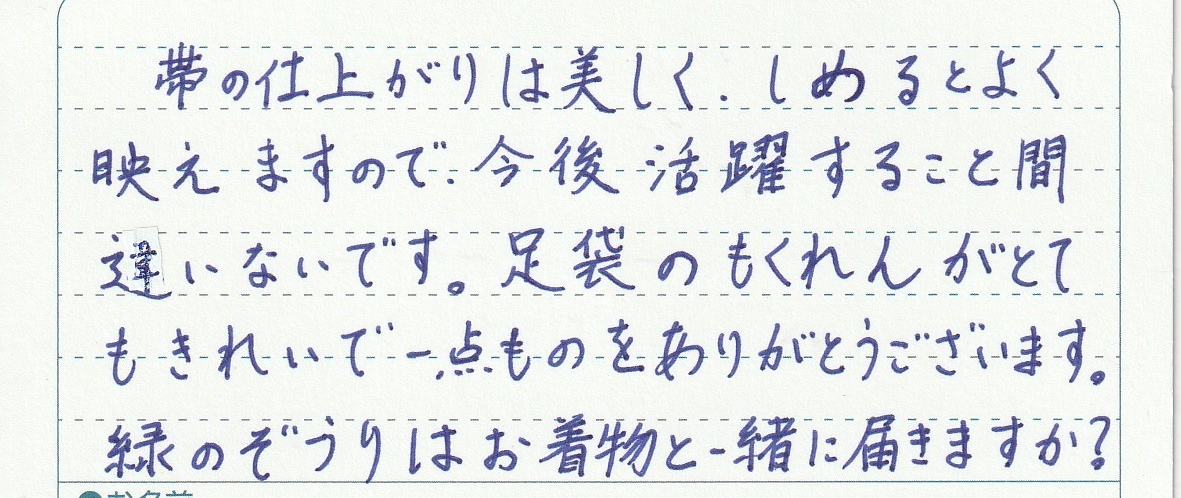 帯の仕上がりは美しく、しめるとよく
映えますので、今後活躍すること間
違いないです。足袋のもくれんがとて
もきれいで一点ものをありがとうございます。
緑のぞうりはお着物と一緒に届きますか?
●お名前